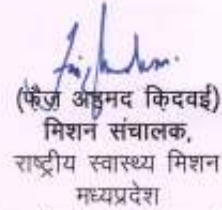 (फैज़ अहमद किदवई)
मिशन संचालक,
राष्ट्रीय स्वास्थ्य मिशन
मध्यप्रदेश